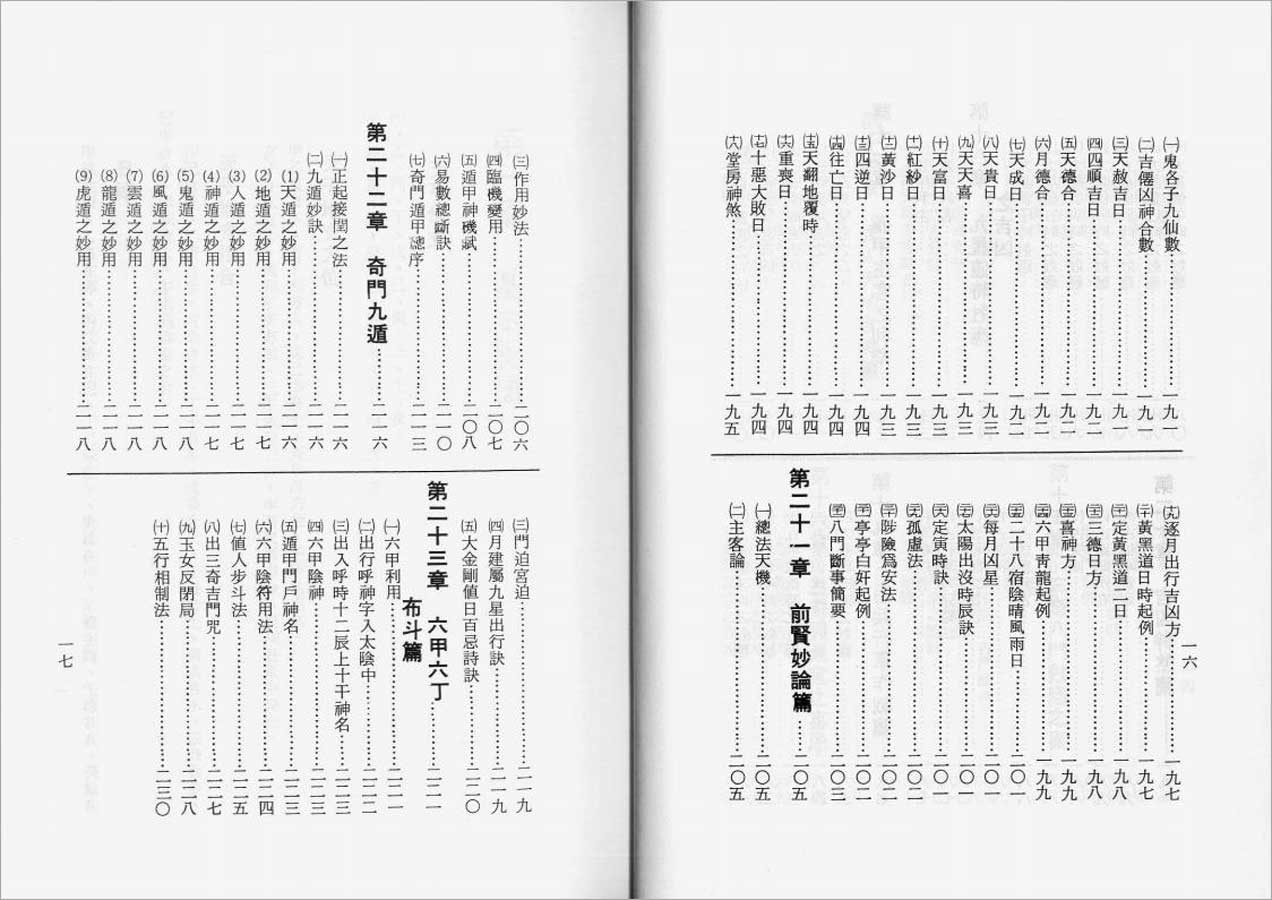 ㈠鬼各子九仙數……一九一
㈡吉僊凶神合數……一九一
㈢天赦吉日……一九一
㈣四順吉日……一九二
㈤天德合……一九二
㈥月德合……一九二
㈦天成日……一九二
㈧天貴日……一九三
㈨天天喜……一九三
㈩天富日……一九三
(十一)紅紗日……一九三
(十二)黃沙日……一九三
(十三)四逆日……一九四
(十四)往亡日……一九四
(十五)天翻地覆時……一九四
(十六)重喪日……一九四
(十七)十惡大敗日……一九四
(十八)堂房神煞……一九五
(十九)逐月出行吉凶方……一九七
(二十)黃黑道日時起例……一九七
(二一)定黃黑道二日……一九八
(二二)三德日方……一九八
(二三)喜神方……一九九
(二四)六甲青龍起例……一九九
(二五)二十八宿陰晴風雨日……二〇一
(二六)每月凶星……二〇一
(二七)太陽出沒時辰訣……二〇一
(二八)天定寅時訣……二〇一
(二九)孤虛法……二〇二
(三十)陟險爲安法……二〇二
(三一)亭亭白奸起例……二〇二
(三二)八門斷事簡要……二〇三
第二十一章 前賢妙論篇……二〇五
㈠總法天機……二〇五
㈡主客論……二〇五
一六
㈢作用妙法……二〇六
㈣臨機變用……二〇七
㈤遁甲神機賦……二〇八
㈥易數總斷訣……二一〇
㈦奇門遁甲總序……二一三
第二十二章 奇門九遁……二一六
㈠正起接閏之法……二一六
㈡九遁妙訣……二一六
⑴天遁之妙用……二一六
⑵地遁之妙用……二一七
⑶人遁之妙用……二一七
⑷神遁之妙用……二一七
⑸鬼遁之妙用……二一八
⑹風遁之妙用……二一八
⑺雲遁之妙用……二一八
⑻龍遁之妙用……二一八
⑼虎遁之妙用……二一八
㈢門迫宮迫……二一九
㈣月建屬九星出行訣……二一九
㈤大金剛値日百忌詩訣……二二〇
第二十三章 六甲六丁……二二一
布斗篇
㈠六甲利用……二二一
㈡出行呼神字入太陰中……二二二
㈢出入呼時十二辰上十干神名……二二三
㈣六甲陰神……二二三
㈤遁甲門戶神名……二二三
㈥六甲陰符用法……二二四
㈦值人步斗法……二二五
㈧出三奇吉門咒……二二七
㈨玉女反閉局……二二八
㈩五行相制法……二三〇
一七